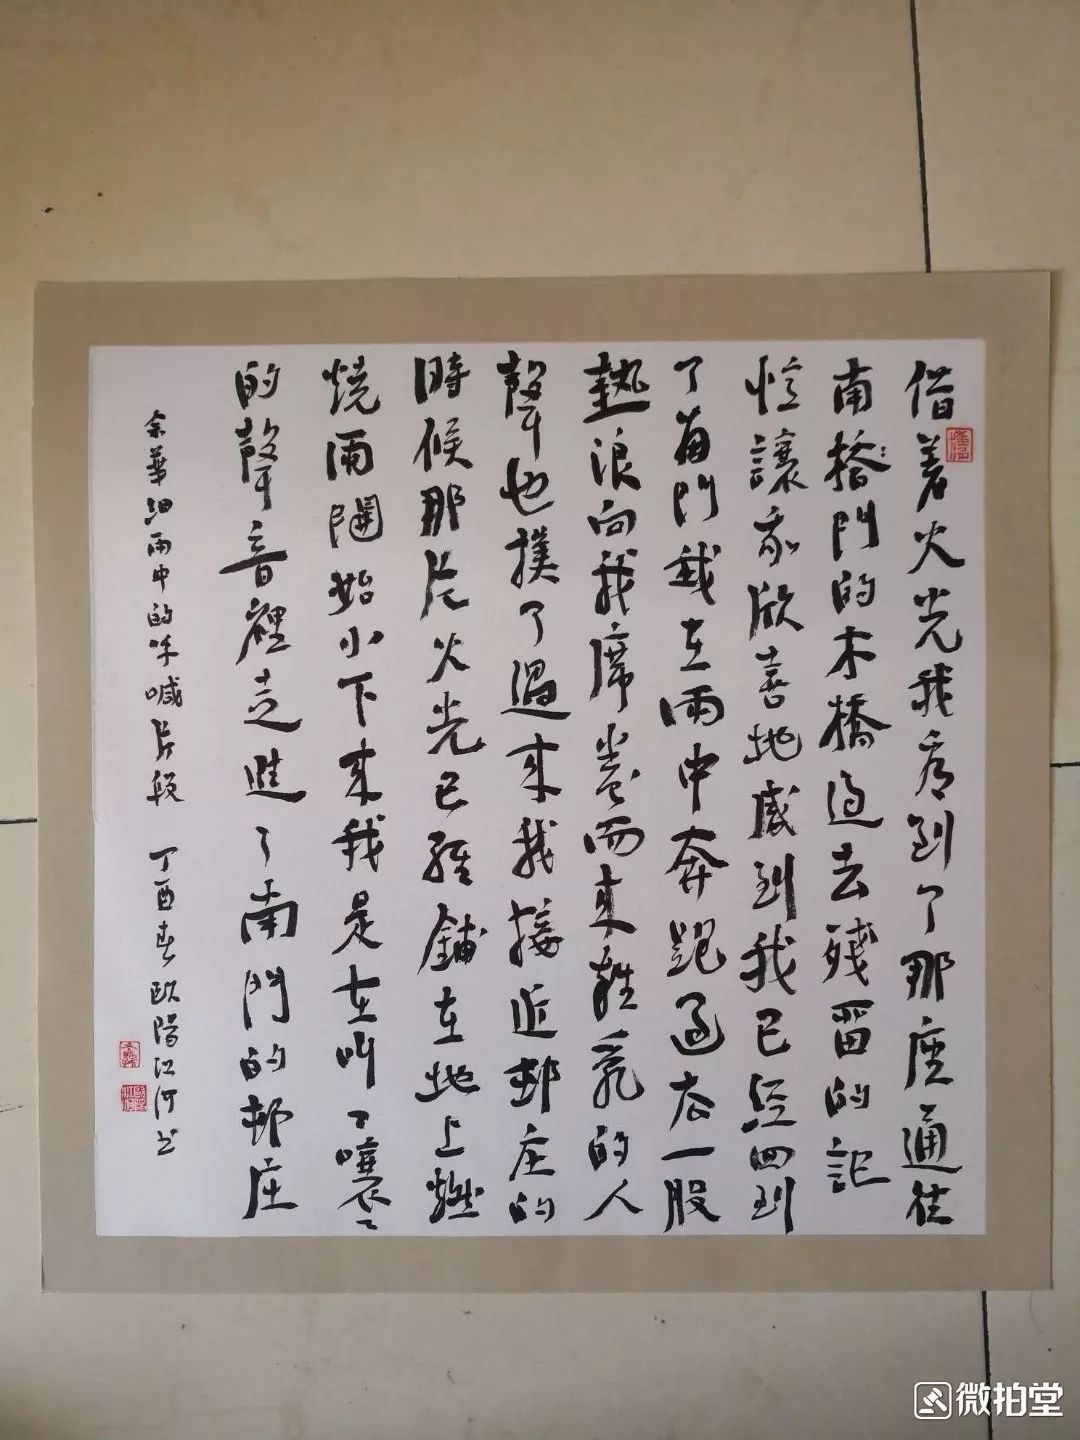 借着火光我看到了那座通往
南橋門的木橋過去殘留的記
憶讓我欣喜地感到我已經回到
了南門我在雨中奔跑過去一股
熱浪向我席卷而來雜亂的人
聲也撲了過來我接近邨庄的
時候那片火光已經鋪在地上燃
燒雨開始小下來我是在叫叫嚷嚷
的聲音裡走進了南門的邨庄
余華細雨中的呼喊片段 丁酉春歐陽江河书
微拍堂